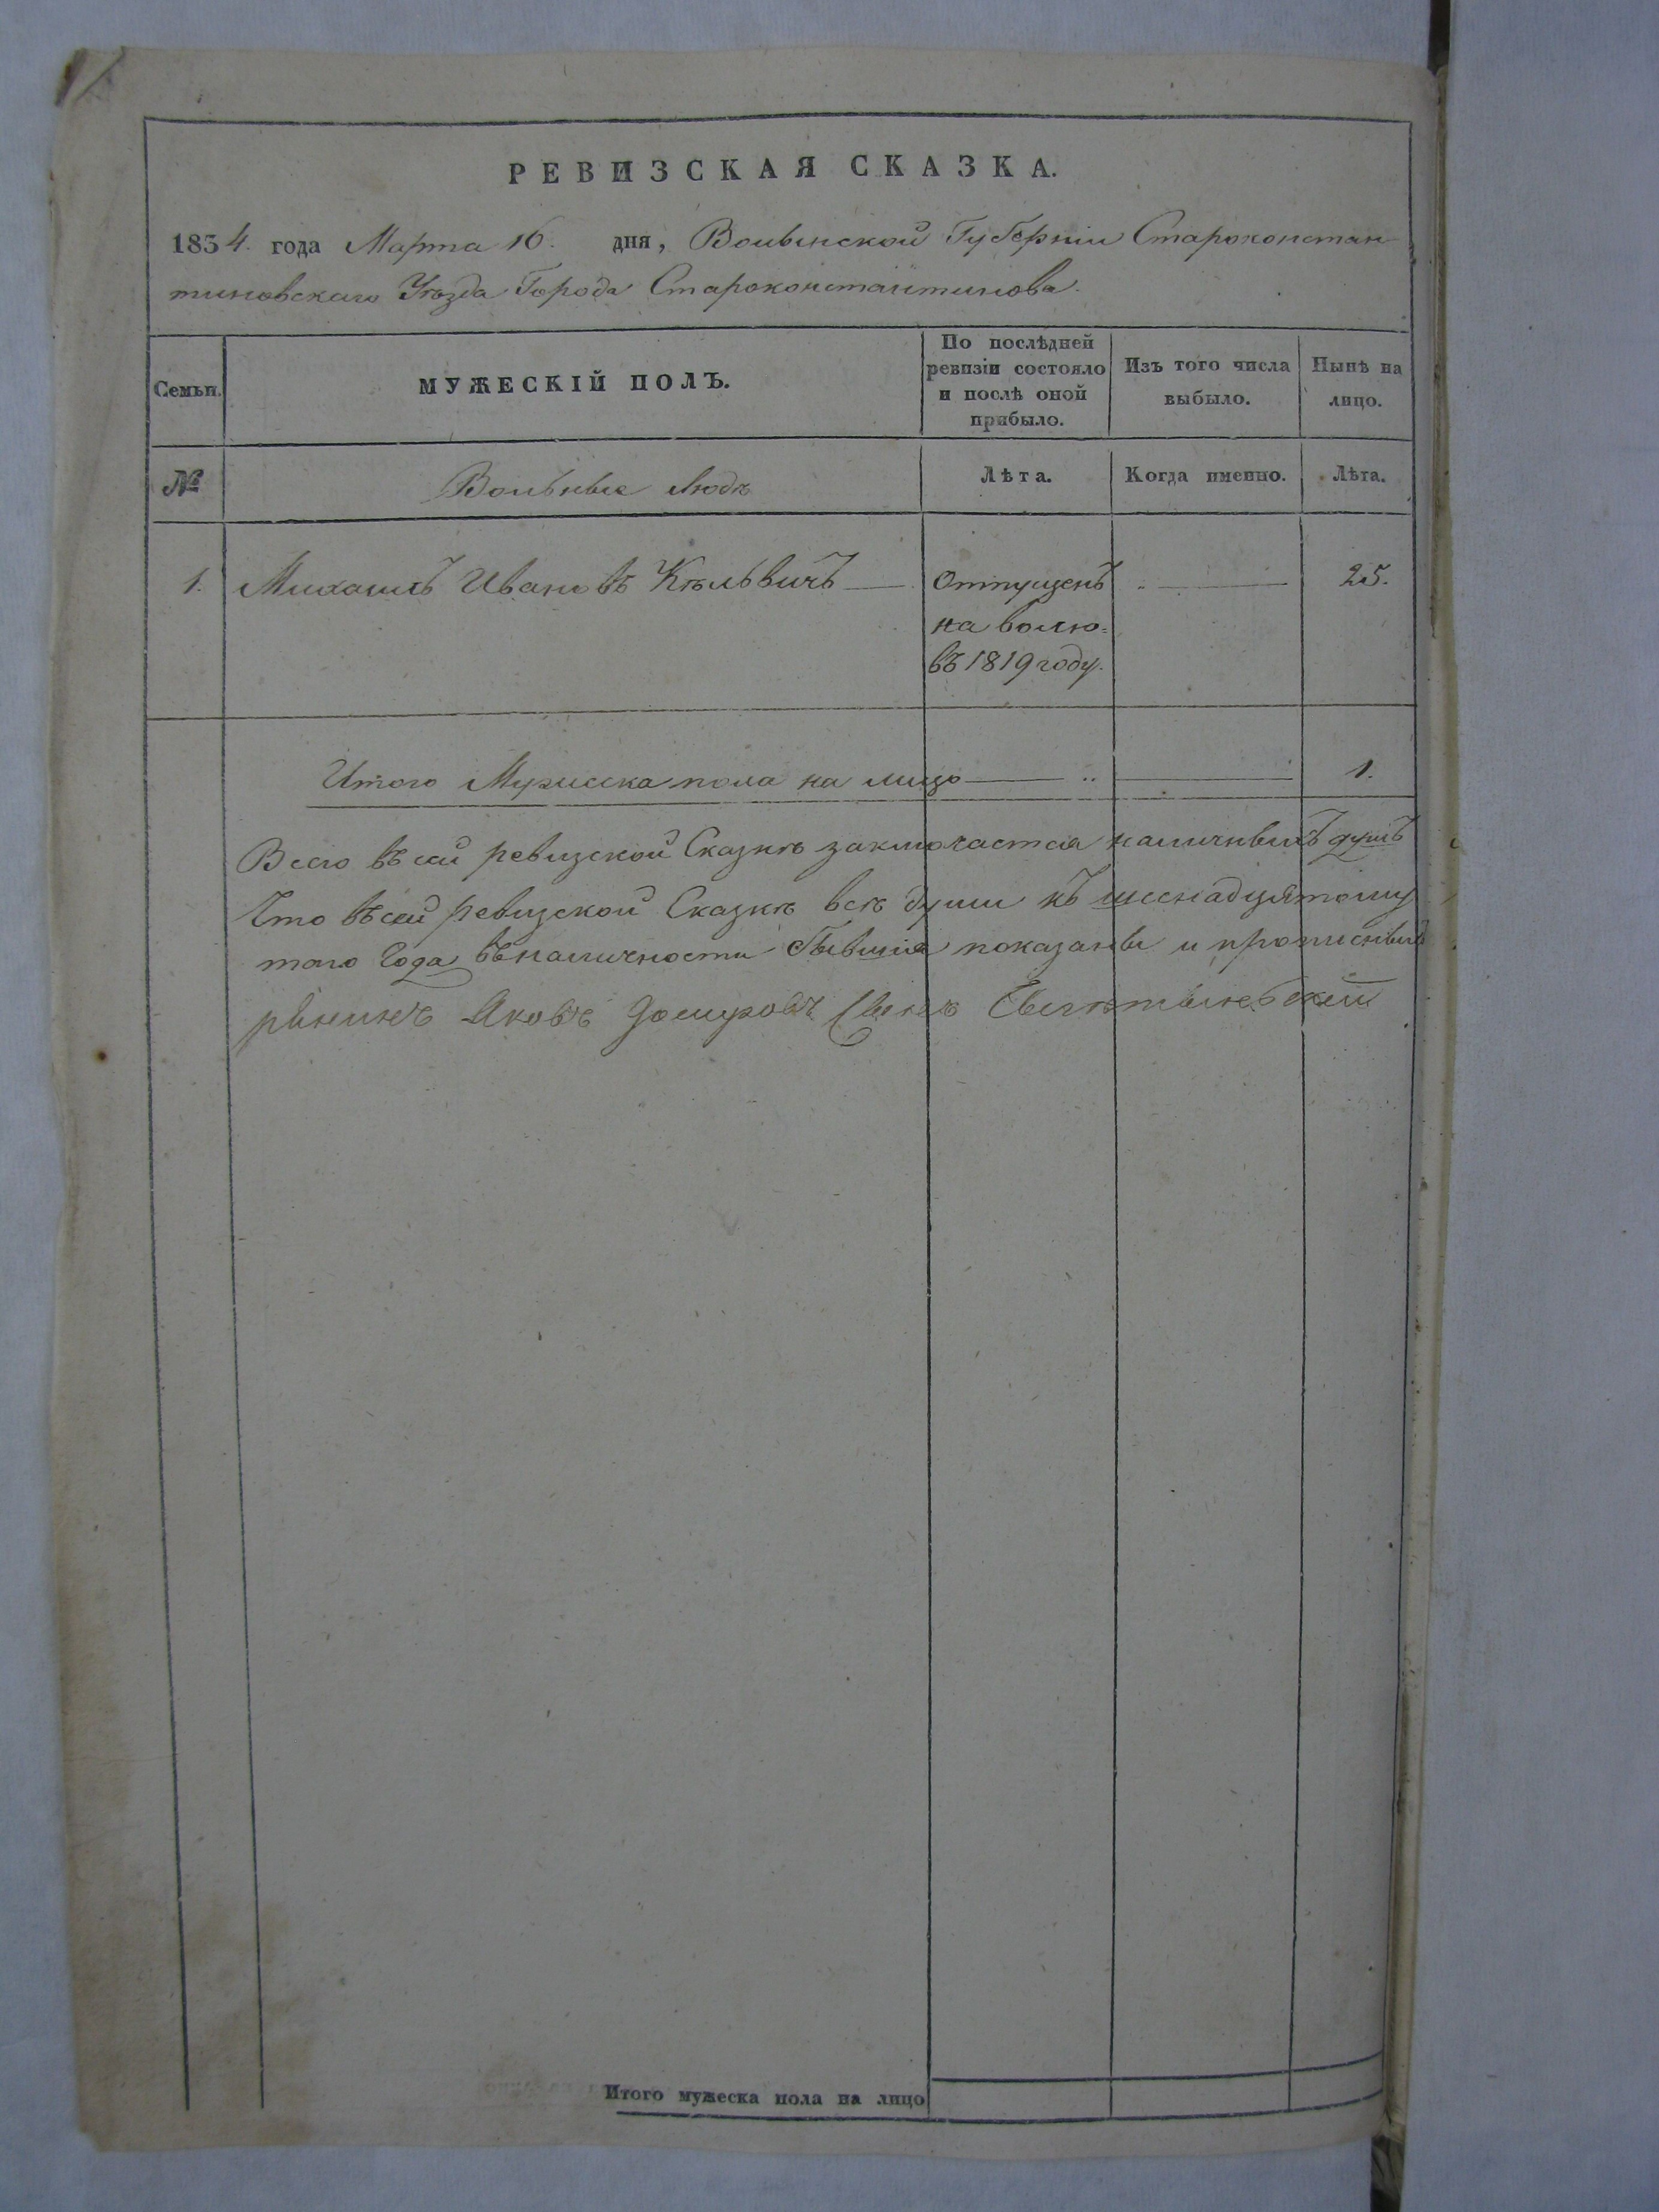 РЕВИЗСКАЯ СКАЗКА.
1834. года Марта 16. дня, Волынской Губерніи Староконстан
тиновскаго Уѣзда Города Староконстантинова.
Семьи.
МУЖЕСКІЙ ПОЛЪ.
По послѣдней
ревизіи состояло
и послѣ оной
прибыло.
Изъ того числа
выбыло.
Нынѣ на
лицо.
№
Вольные Людѣ
Лѣта.
Когда именно.
Лѣта.
1. Михаилъ Ивановъ Отпущенъ 25.
на волю
въ 1819 году.
Итого Мужеска пола на лицо 1.
Всего въ сей ревизской Сказкѣ заключается наличныхъ душъ
Что въ сей ревизской Сказкѣ всѣ души къ шеснадцятому
того Года въ наличности бывшія показаны и
Яковъ
Итого мужеска пола на лицо